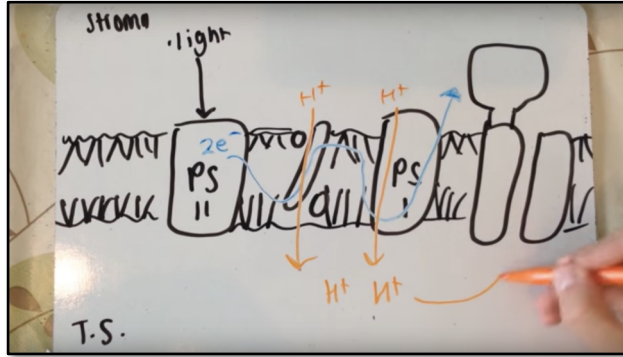 stroma
light
H+ H+
2e-
PS PS
II I
H+ H+
T.S.